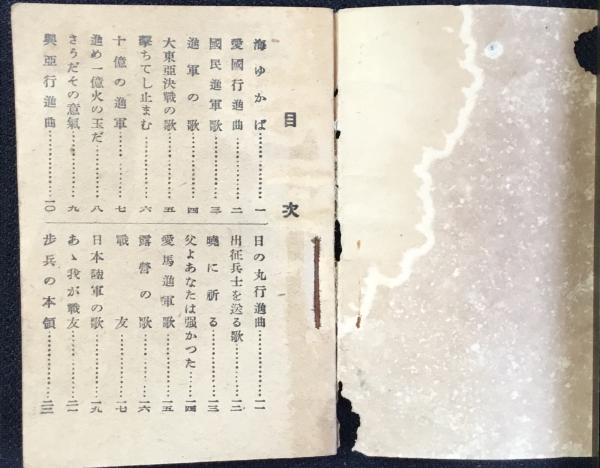 目次
海ゆかば…………一
愛國行進曲…………二
國民進軍歌…………三
進軍の歌…………四
大東亞決戰の歌…………五
擊ちてし止まむ…………六
十億の進軍…………七
進め一億火の玉だ…………八
さうだその意氣…………九
興亞行進曲…………一〇
日の丸行進曲…………一一
出征兵士を送る歌…………一二
曉に祈る…………一三
父よあなたは强かつた…………一四
愛馬進軍歌…………一五
露營の歌…………一六
戰友…………一七
日本陸軍の歌…………一九
あゝ我が戰友…………二一
步兵の本領…………二三